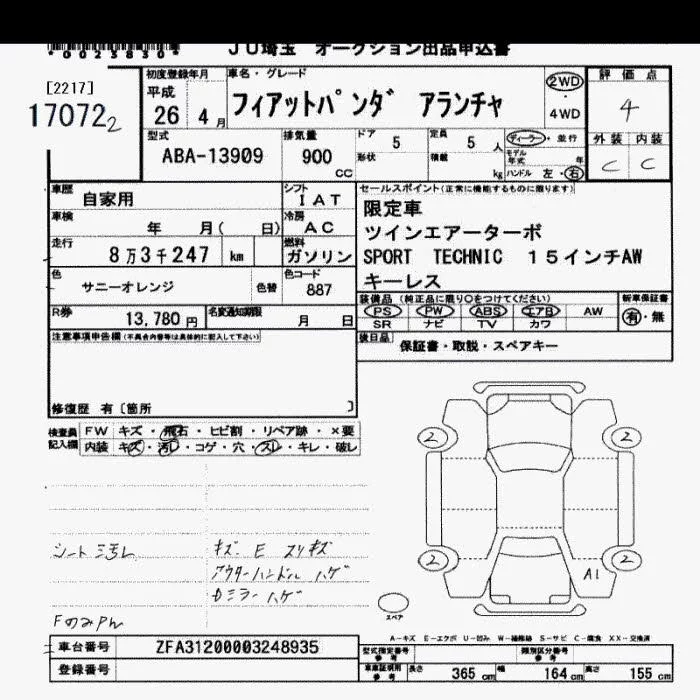 *0023830*
JU埼玉 オークション出品申込書
[2217]
17072 2
初度登録年月
平成
26 4月
車名・グレード
フィアットパンダ アランチャ
2WD
・
4WD
評価点
4
型式
ABA-13909
排気量
900 CC
ドア 5
形状
定員 5 人
積載 kg
ディーラー・並行
モデル年式 年
ハンドル 左・右
外装 内装
C C
車歴
自家用
シフト
IAT
車検
年 月( 日)
冷房
AC
走行
8万3千247 km
燃料
ガソリン
色
サニーオレンジ
色替
色コード
887
R券
13,780 円
名変通知期限
月 日
セールスポイント(正常に機能するものに限ります)
限定車
ツインエアーターボ
SPORT TECHNIC 15インチAW
キーレス
装備品(純正品に限り○をつけてください)
PS PW ABS エアB AW
SR ナビ TV カワ
新車保証書
有・無
後日品
保証書・取説・スペアキー
注意事項申告欄(不具合内容等は具体的に記入して下さい)
修復歴 有〔箇所 〕
検査員記入欄
FW キズ・飛石・ヒビ割・リペア跡・×要
内装 キズ・汚レ・コゲ・穴・スレ・キレ・破レ
シート ミ汚レ
キズ E スリキズ
アウターハンドル ハゲ
Dミラーハゲ
FのみPん
2
2
2
2
A1
スペア
A-キズ E-エクボ U-凹み W-補修跡 S-サビ C-腐食 XX-交換済
車台番号
ZFA31200003248935
登録番号
型式指定番号 参考
類別区分番号 参考
車庫証明用 参考
長さ 365 cm
幅 164 cm
高さ 155 cm